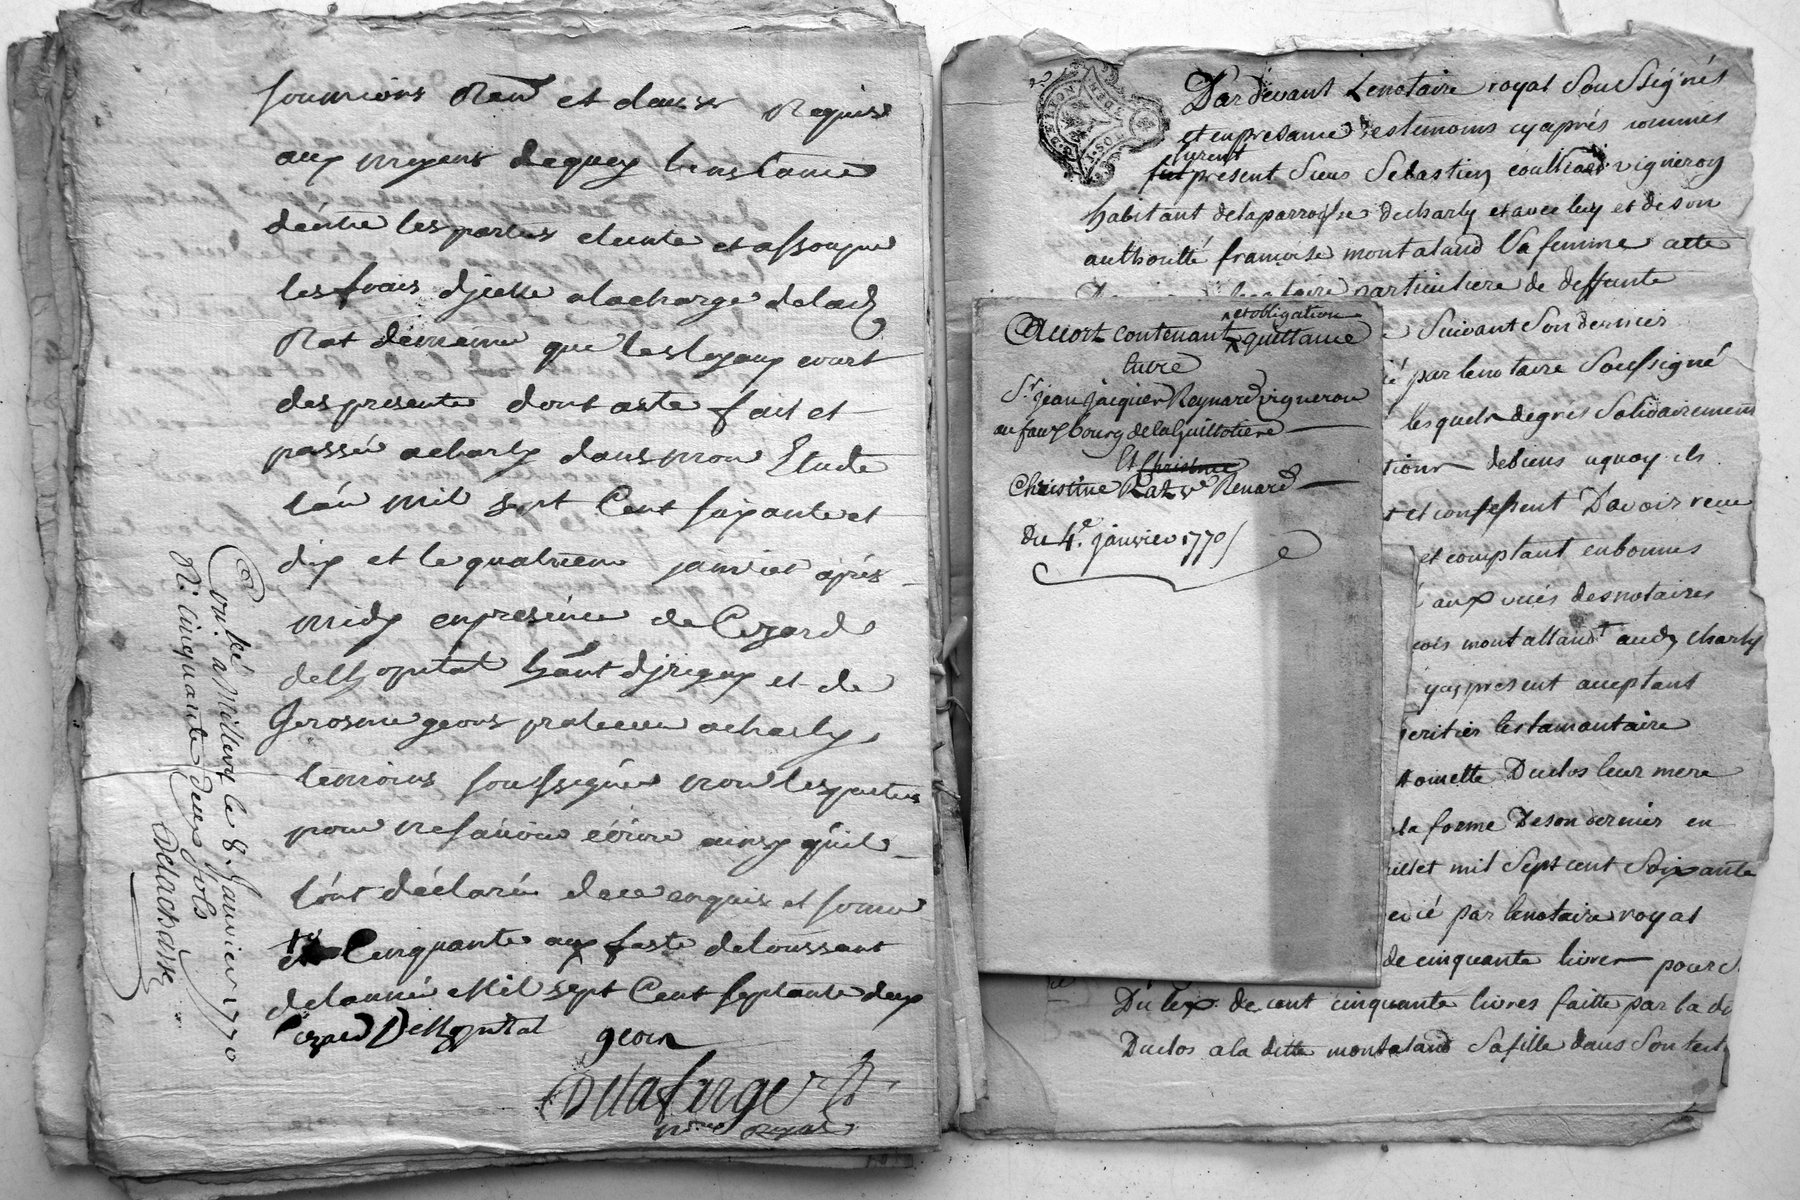 soumions Ren et clauses Requis
aux moyens dequoy linstance
dentre les parties eteinte et assoupie
les frais djcelle alacharge delad
Rat dememe que les loyaux cout
des presente dont acte fait et
passé acharly dans mon Etude
lan mil sept Cent soixante et
dix et le quatrieme janvier après
midy enpresence de Cezard
delhopital hant djrigny et de
Jerosme geoin praticien acharly
temoins soussignés non les parties
pour ne sçavoir écrire ainsy qu'il
lont déclaré de ce enquis et somé
Cinquante aux feste de toussant
delanné Mil sept Cent septante deux
Cezard Delhopital geoin
Dellafarge
nore Royal
Con.lé a Millery le 8. Janvier 1770
R. cinquante deux sols
Delachasse
Pardevant Lenotaire royal Soussignés
et enpresance restemoins cyaprés nommés
furent
fut present Sieur Sebastien coulliard vigneron
habitant delaparroisse decharly et avec luy et deson
authorité françoise montaland Sa femme cette
légataire particuliere de deffunte
Suivant Son dernier
é par lenotaire Soussigné
lesquels degrés Solidairement
tions debiens aquoy ils
et confessent Davoir recu
et comptant enbonnes
aux vues desnotaires
cois montalland aud charly
ycy present aceptant
heritier testamantaire
tomette Duclos leur mere
la forme Deson dernier en
uillet mil Sept cent Soixante
par lenotaire royal
de cinquante livres pour
Du lex de cent cinquante livres faitte par la d
Duclos a la ditte montaland Sa fille dans Son test
et obligation
Accort contenant quittance
Entre
Sr. jean jacquier Reynard vigneron
au fauxbourg de la Guillotiere
Et Christine
Christine Rat ve. Renard
Du 4e. janvier 1770